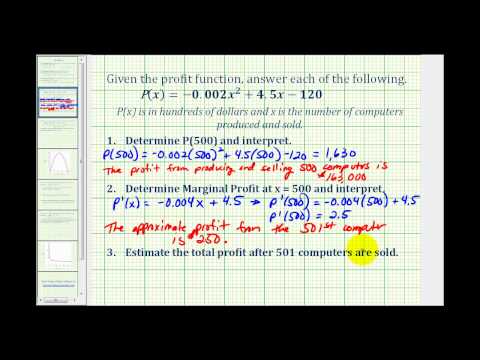 Given the profit function, answer each of the following.
P(x) = −0.002x² + 4.5x − 120
P(x) is in hundreds of dollars and x is the number of computers
produced and sold.
1. Determine P(500) and interpret.
P(500) = -0.002(500)² + 4.5(500) - 120 = 1,630
The profit from producing and selling 500 computers is
$163,000
2. Determine Marginal Profit at x = 500 and interpret.
P'(x) = -0.004x + 4.5 → P'(500) = -0.004(500) + 4.5
P'(500) = 2.5
The approximate profit from the 501st computer
is $250.
3. Estimate the total profit after 501 computers are sold.